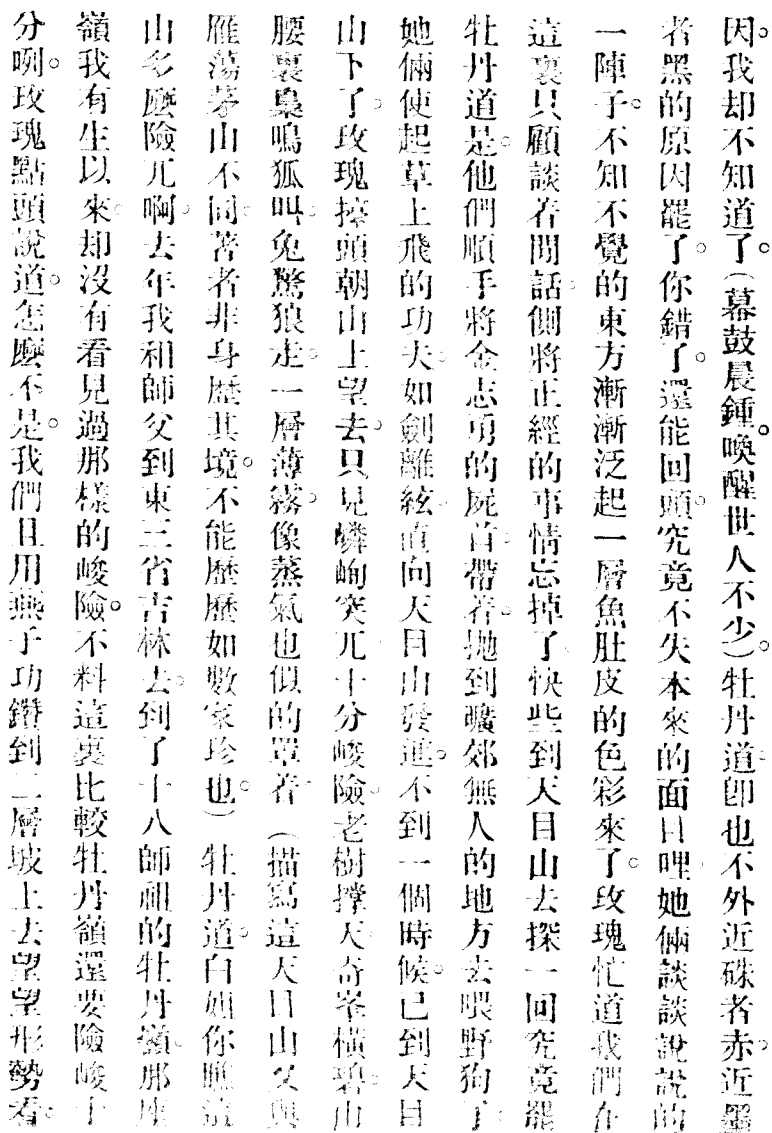 因。我却不知道了。(幕鼓晨鍾。喚醒世人不少。)牡丹道。卽也不外近硃者赤。近墨
者黑的原因罷了。你錯了。還能回頭。究竟不失本來的面目哩。她倆談談說說的
一陣子。不知不覺的東方漸漸泛起一層魚肚皮的色彩來了。玫瑰忙道我們在
這裏只顧談着閒話。側將正經的事情忘掉了。快些到天目山去探一回究竟罷
牡丹道是。他們順手將金志勇的屍首帶着。拋到曠郊無人的地方去喂野狗了。
她倆便起草上飛的功夫。如劍離絃。直向天目山發進。不到一個時候。已到天目
山下了。玫瑰擡頭朝山上望去。只見嶙峋突兀十分峻險。老樹撑天。奇峯橫碧。山
腰裏梟鳴狐叫。兔驚狼走。一層薄霧。像蒸氣也似的罩着。(描寫這天目山又與
雁蕩茅山不同。著者非身歷其境。不能歷歷如數家珍也。)牡丹道。白如你瞧這
山多麽險兀啊。去年我和師父到東三省吉林去。到了十八師祖的牡丹嶺。那座
嶺我有生以來。却沒有看見過那樣的峻險。不料這裏比較牡丹嶺還要險峻十
分咧。玫瑰點頭說道。怎麽不是。我們且用燕子功鑽到二層坡上去望望形勢看。